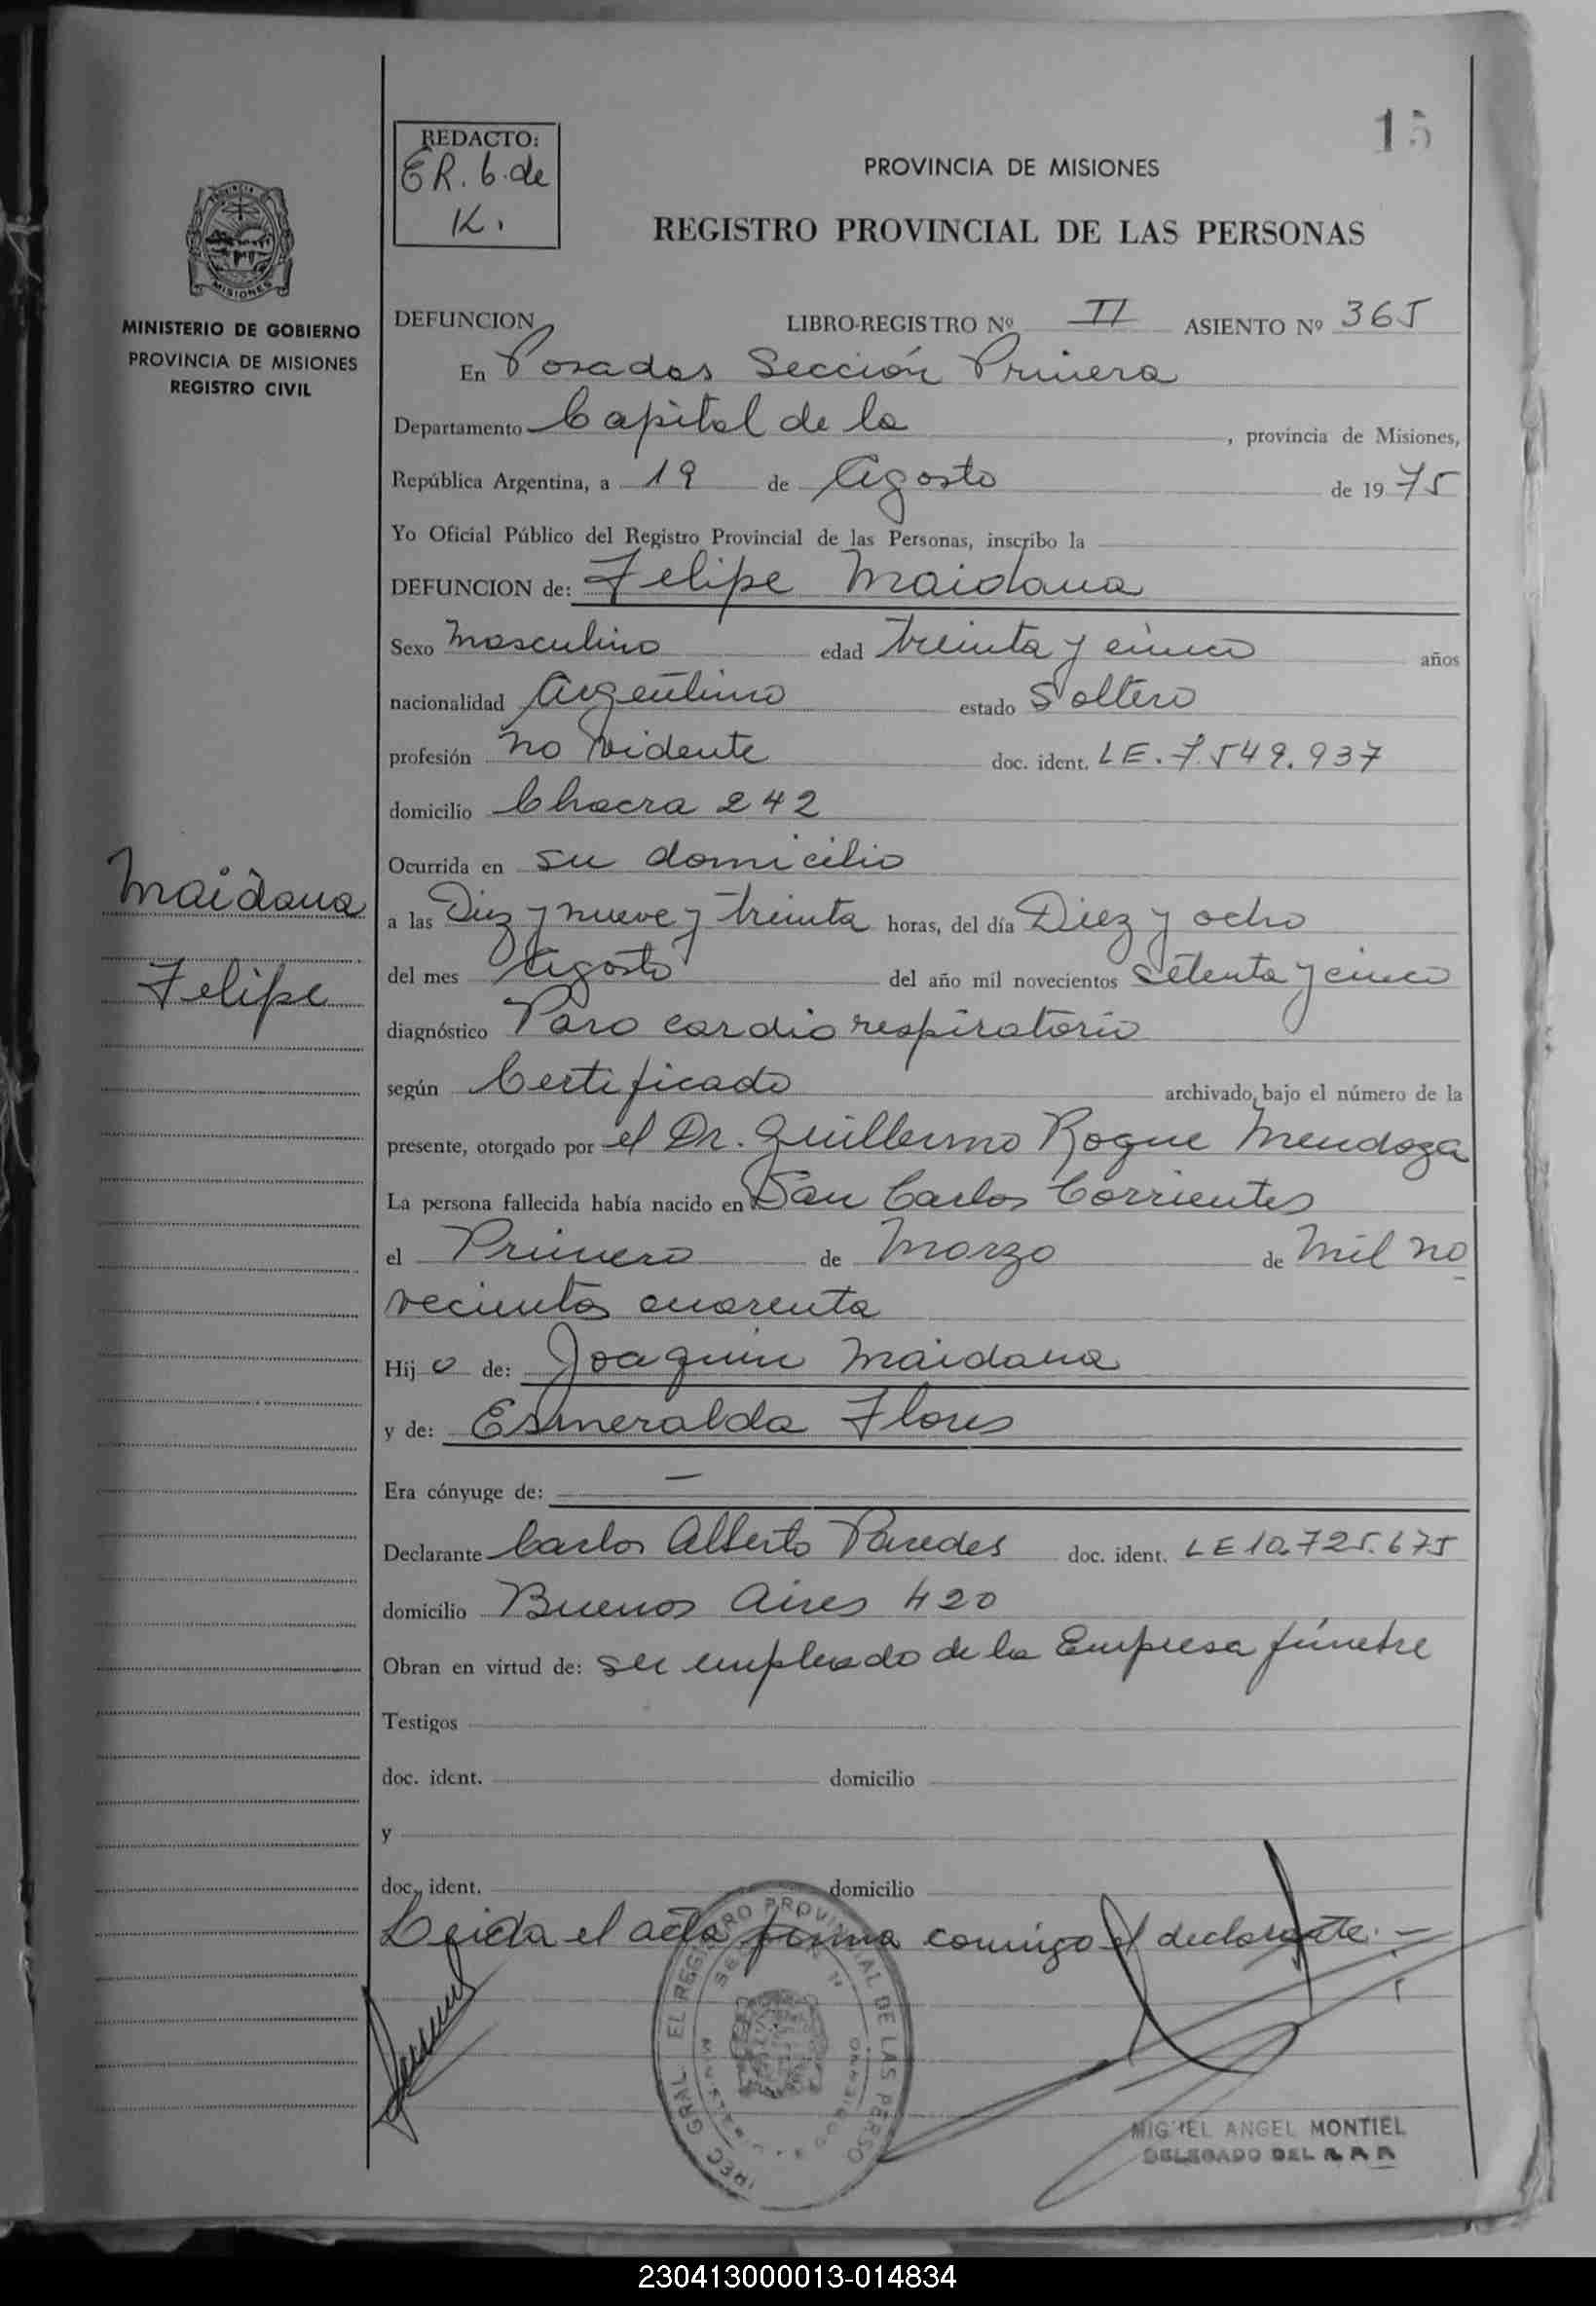 15
REDACTO:
E R. G. de
K.
PROVINCIA DE MISIONES
REGISTRO PROVINCIAL DE LAS PERSONAS
MISIONES
MINISTERIO DE GOBIERNO
PROVINCIA DE MISIONES
REGISTRO CIVIL
DEFUNCION LIBRO-REGISTRO Nº II ASIENTO Nº 365
En Posadas Sección Primera
Departamento Capital de la , provincia de Misiones,
República Argentina, a 19 de Agosto de 1975
Yo Oficial Público del Registro Provincial de las Personas, inscribo la
DEFUNCION de: Felipe Maidana
Sexo Masculino edad treinta y cinco años
nacionalidad Argentino estado Soltero
profesión no vidente doc. ident. LE. 7.549.937
domicilio Chacra 242
Ocurrida en su domicilio
Maidana
Felipe
a las Diez y nueve y treinta horas, del día Diez y ocho
del mes Agosto del año mil novecientos setenta y cinco
diagnóstico Paro cardio respiratorio
según Certificado archivado, bajo el número de la
presente, otorgado por el Dr. Guillermo Roque Mendoza
La persona fallecida había nacido en San Carlos Corrientes
el Primero de Marzo de Mil no
vecientos cuarenta
Hijo de: Joaquin Maidana
y de: Esmeralda Flores
Era cónyuge de: —
Declarante Carlos Alberto Paredes doc. ident. LE 10.725.675
domicilio Buenos Aires 420
Obran en virtud de: ser empleado de la Empresa fúnebre
Testigos
doc. ident. domicilio
y
doc. ident. domicilio
Leida el acta firma conmigo el declarante. —
MIGUEL ANGEL MONTIEL
DELEGADO DEL R. P. P.
230413000013-014834